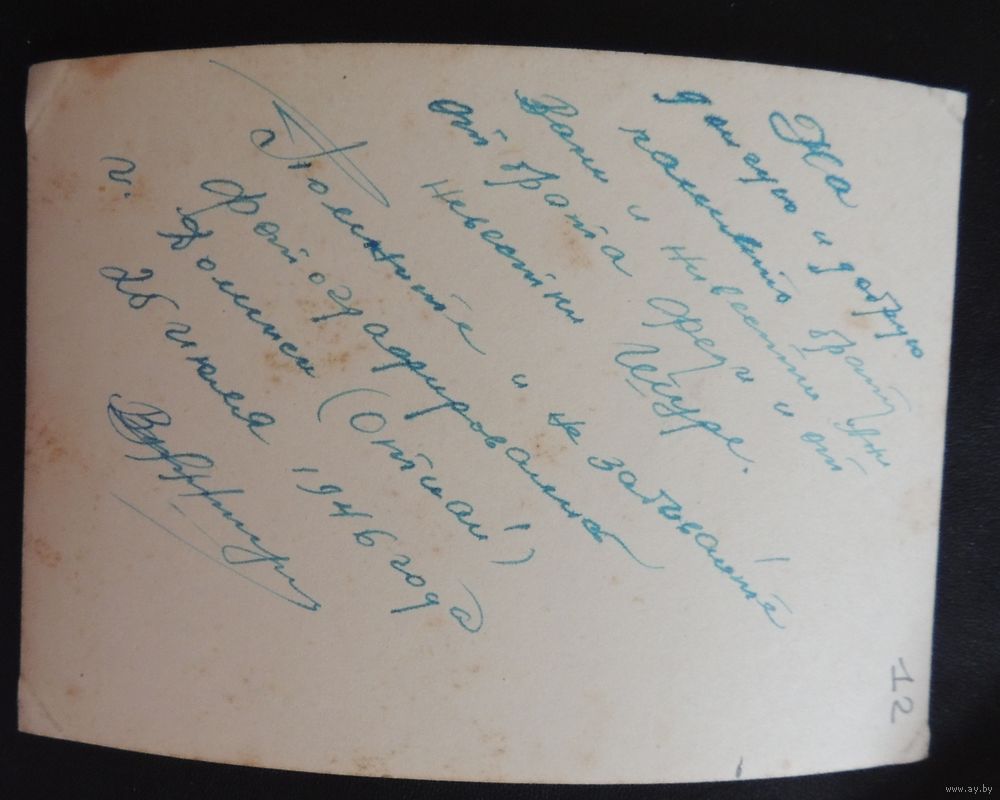 На
долгую и добрую
память брату
Вани и невестки и от
от брата Феди
невестки Шуре.
Помните и не забывайте
фотографировались
г. Фомин (отпай)
26 июля 1946 года
12
www.ay.by